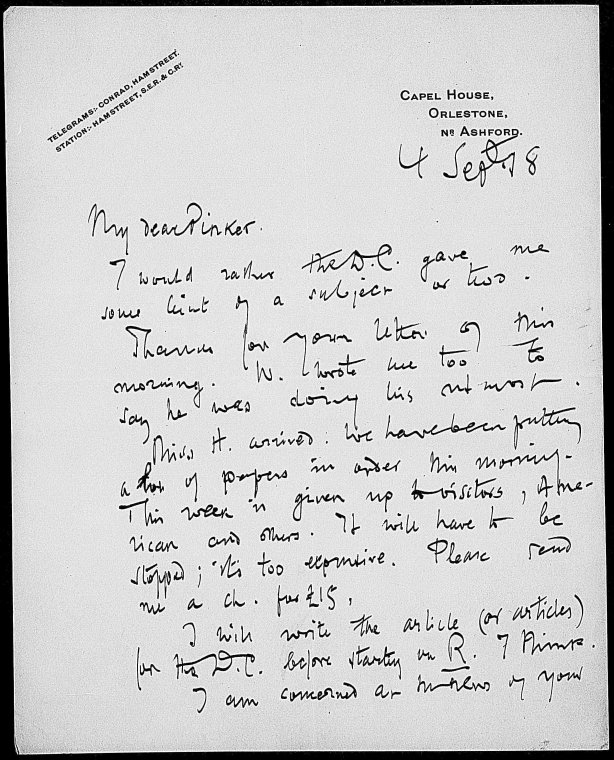 TELEGRAMS:- CONRAD, HAMSTREET.
STATION:- HAMSTREET, S.E.R. & C.RY.
CAPEL HOUSE,
ORLESTONE,
NR ASHFORD.
4 Sept 18
My dear Pinker.
I would rather the D.C. gave me
some hint of a subject or two.
Thanks for your letter of this
morning. W. wrote me too to
say he was doing his utmost.
Miss H. arrived. We have been putting
a lot of papers in order this morning.
This week is given up to visitors, Ame-
rican and others. It will have to be
stopped; it's too expensive. Please send
me a ch. for £15,
I will write the article (or articles)
for the D.C. before starting on R. I think.
I am concerned at the news of your